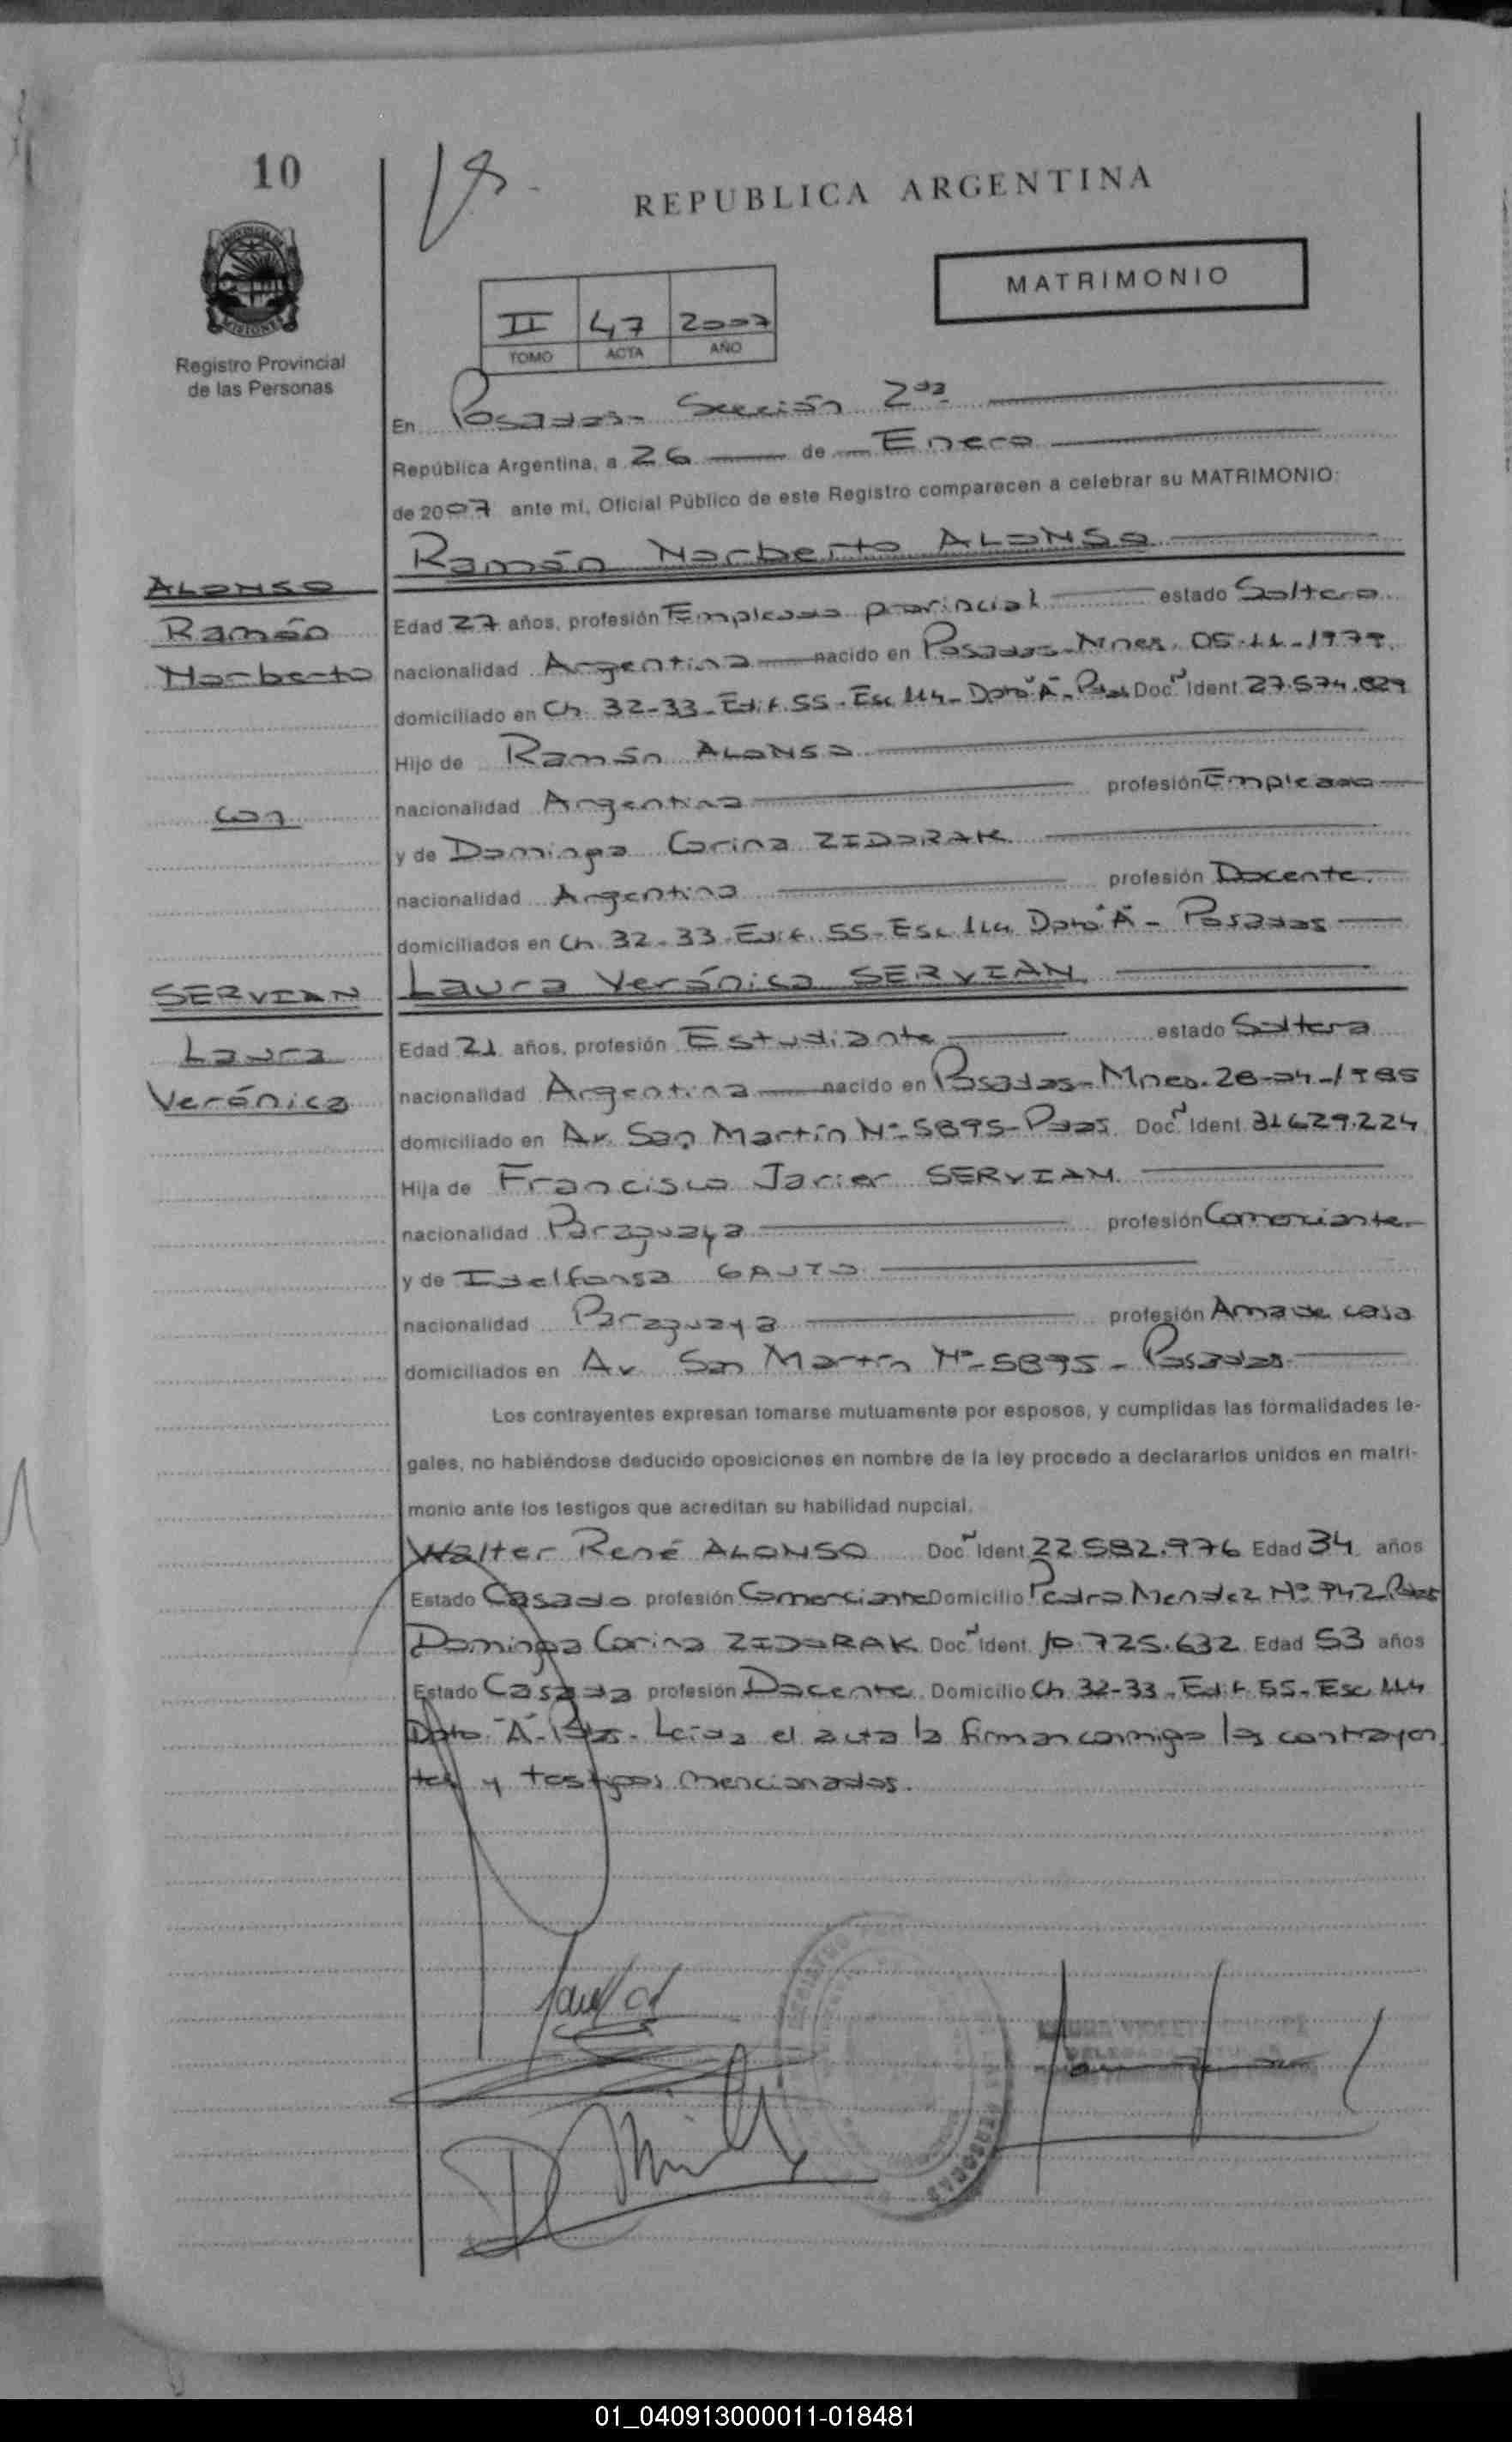 10
REPUBLICA ARGENTINA
MATRIMONIO
PROVINCIA DE
MISIONES
Registro Provincial
de las Personas
II 47 2007
TOMO ACTA AÑO
En Posadas - Sección 2da
República Argentina, a 26 de Enero
de 2007 ante mí, Oficial Público de este Registro comparecen a celebrar su MATRIMONIO:
Ramón Norberto ALONSO
ALONSO
Ramón
Norberto
con
SERVIAN
Laura
Verónica
Edad 27 años, profesión Empleado provincial estado Soltero
nacionalidad Argentina nacido en Posadas - Mnes. 05-11-1979.
domiciliado en Ch. 32-33 - Edif. 55 - Esc 114 - Dpto "A" - Pdas Doc. Ident. 27.574.829
Hijo de Ramón ALONSO
nacionalidad Argentina profesión Empleado
y de Dominga Corina ZIDORAK
nacionalidad Argentina profesión Docente.
domiciliados en Ch. 32-33 - Edif. 55 - Esc 114 Dpto "A" - Posadas
Laura Verónica SERVIAN
Edad 21 años, profesión Estudiante estado Soltera
nacionalidad Argentina nacido en Posadas - Mnes. 28-04-1985
domiciliado en Av. San Martín Nº 5895 - Pdas. Doc. Ident. 31.629.224
Hija de Francisco Javier SERVIAN.
nacionalidad Paraguaya profesión Comerciante.
y de Idelfonsa GAUTO
nacionalidad Paraguaya profesión Ama de casa
domiciliados en Av. San Martín Nº 5895 - Posadas.
Los contrayentes expresan tomarse mutuamente por esposos, y cumplidas las formalidades le-
gales, no habiéndose deducido oposiciones en nombre de la ley procedo a declararlos unidos en matri-
monio ante los testigos que acreditan su habilidad nupcial.
Walter René ALONSO Doc. Ident. 22.582.976 Edad 34 años
Estado Casado profesión Comerciante Domicilio Pedro Mendez Nº 942 Pdas
Dominga Corina ZIDORAK Doc. Ident. 10.725.632 Edad 53 años
Estado Casada profesión Docente Domicilio Ch. 32-33 - Edif. 55 - Esc. 114
Dpto. "A" - Pdas - Leída el acta la firman conmigo los contrayen
tes y testigos mencionados.
01_040913000011-018481